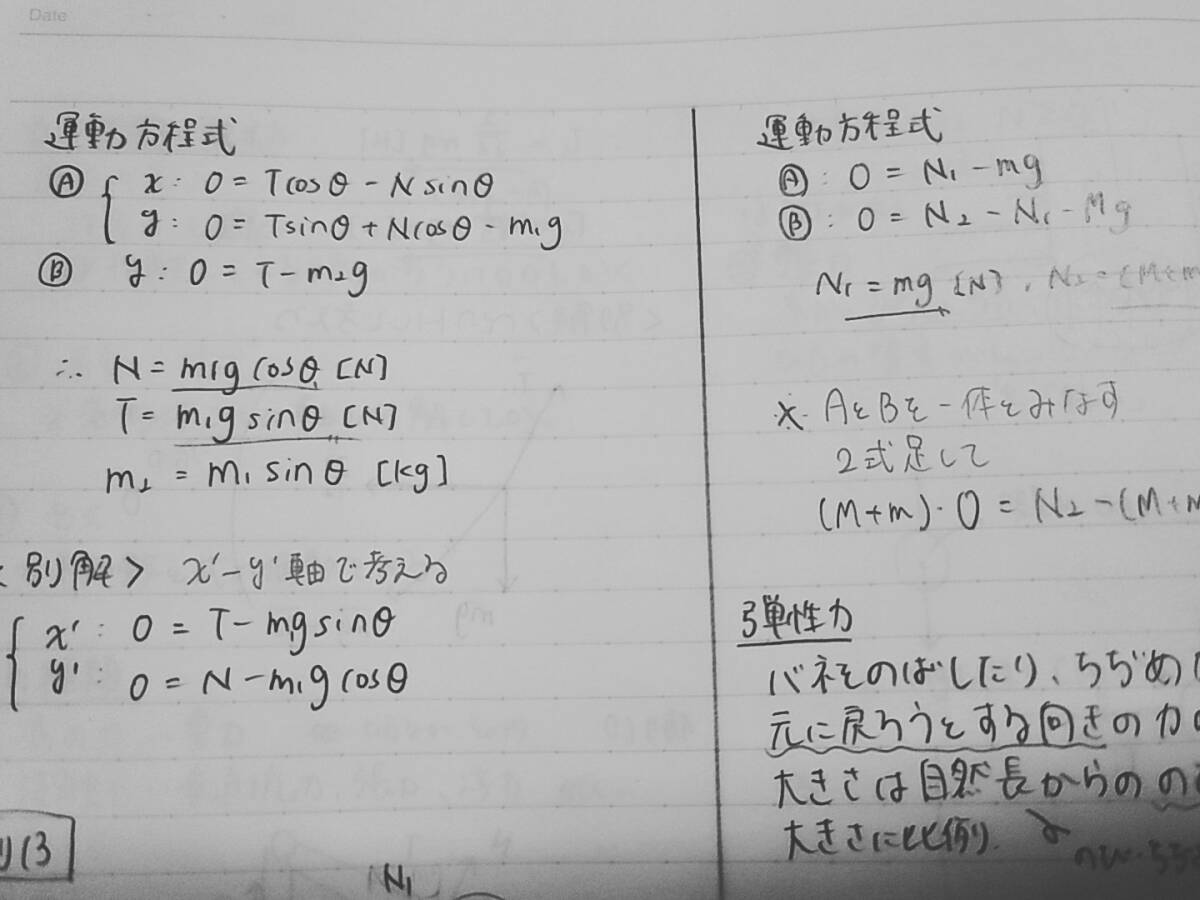 Date
運動方程式
Ⓐ { x: 0 = Tcosθ - Nsinθ
y: 0 = Tsinθ + Ncosθ - m₁g
Ⓑ y: 0 = T - m₂g
∴ N = m₁g cosθ [N]
T = m₁g sinθ [N]
m₂ = m₁ sinθ [kg]
<別解> x'-y'軸で考える
{ x': 0 = T - m₁g sinθ
y': 0 = N - m₁g cosθ
13
N₁
運動方程式
Ⓐ: 0 = N₁ - mg
Ⓑ: 0 = N₂ - N₁ - Mg
N₁ = mg [N], N₂ = (M+m
※ AとBを一体とみなす
2式足して
(M+m)・0 = N₂ - (M+m
弾性力
バネをのばしたり、ちぢめ
元に戻ろうとする向きの力
大きさは自然長からの
大きさに比例.